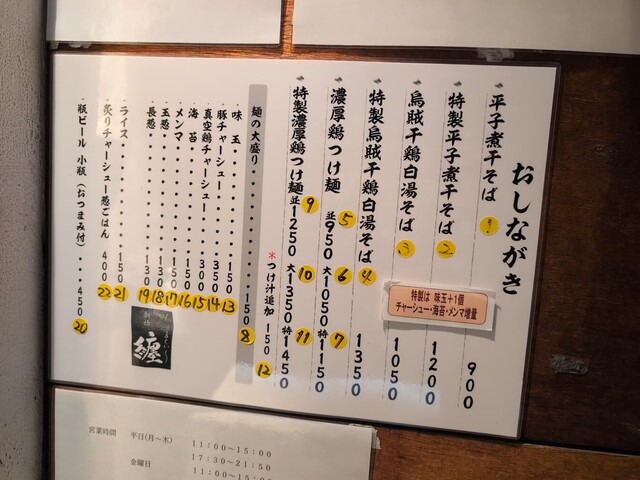 おしながき
平子煮干そば 1 900
特製平子煮干そば 2 1200
烏賊干鶏白湯そば 3 1050
特製烏賊干鶏白湯そば 4 1350
特製は 味玉+1個
チャーシュー・海苔・メンマ増量
濃厚鶏つけ麺 並 5 950 大 6 1050 特 7 1150
特製濃厚鶏つけ麺 並 9 1250 大 10 1350 特 11 1450
*つけ汁追加 150 12
麺の大盛り 150 8
・味玉 150 13
・豚チャーシュー 350 14
・真空鶏チャーシュー 300 15
・海苔 150 16
・メンマ 150 17
・玉葱 130 18
・長葱 130 19
・ライス 150 21
・炙りチャーシュー葱ごはん 400 22
・瓶ビール 小瓶(おつまみ付) 450 20
纏
営業時間 平日(月~木) 11:00~15:00
17:30~21:50
金曜日 11:00~15:00